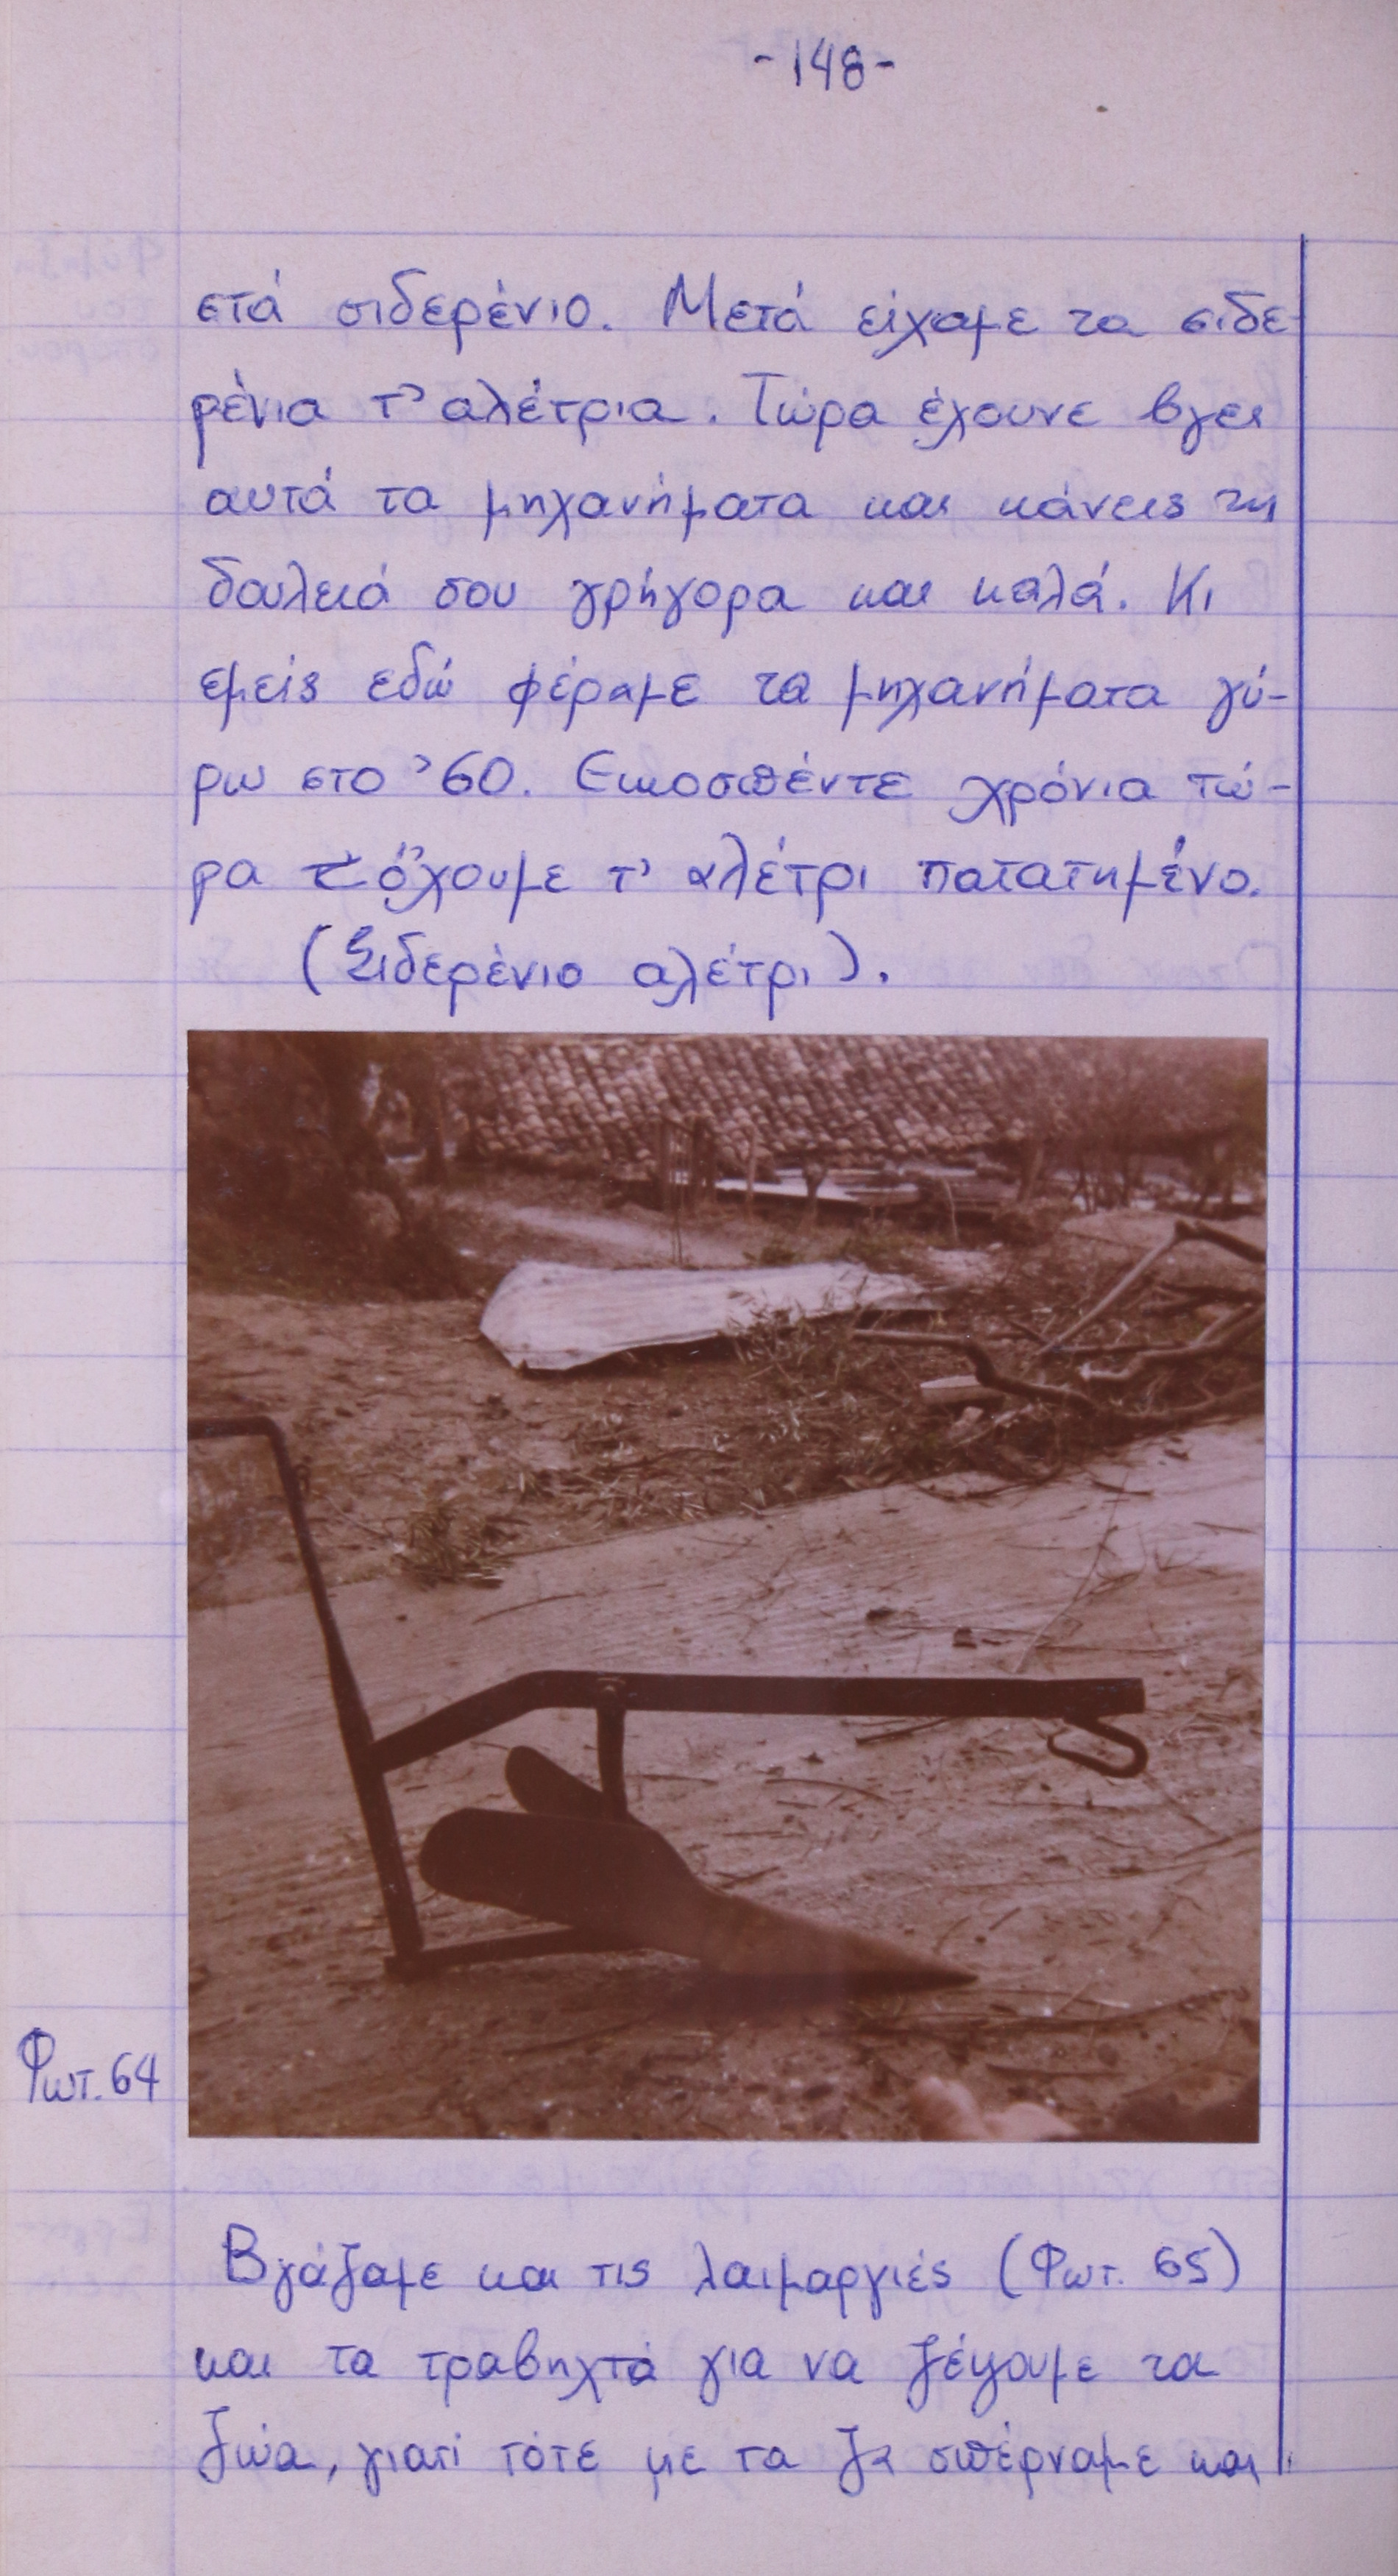 -148-
στά σιδερένιο. Μετά είχαμε τα σιδε-
ρένια τ' αλέτρια. Τώρα έχουνε βγει
αυτά τα μηχανήματα και κάνεις τη
δουλειά σου γρήγορα και καλά. Κι
εμείς εδώ φέραμε τα μηχανήματα γύ-
ρω στο '60. Εικοσιπέντε χρόνια τώ-
ρα τόχουμε τ' αλέτρι παταημένο.
(Σιδερένιο αλέτρι).
Φωτ. 64
Βγάζαμε και τις λαιμαργιές (Φωτ. 65)
και τα τραβηχτά για να ζέψουμε τα
ζώα, γιατί τότε με τα ζα σπέρναμε και